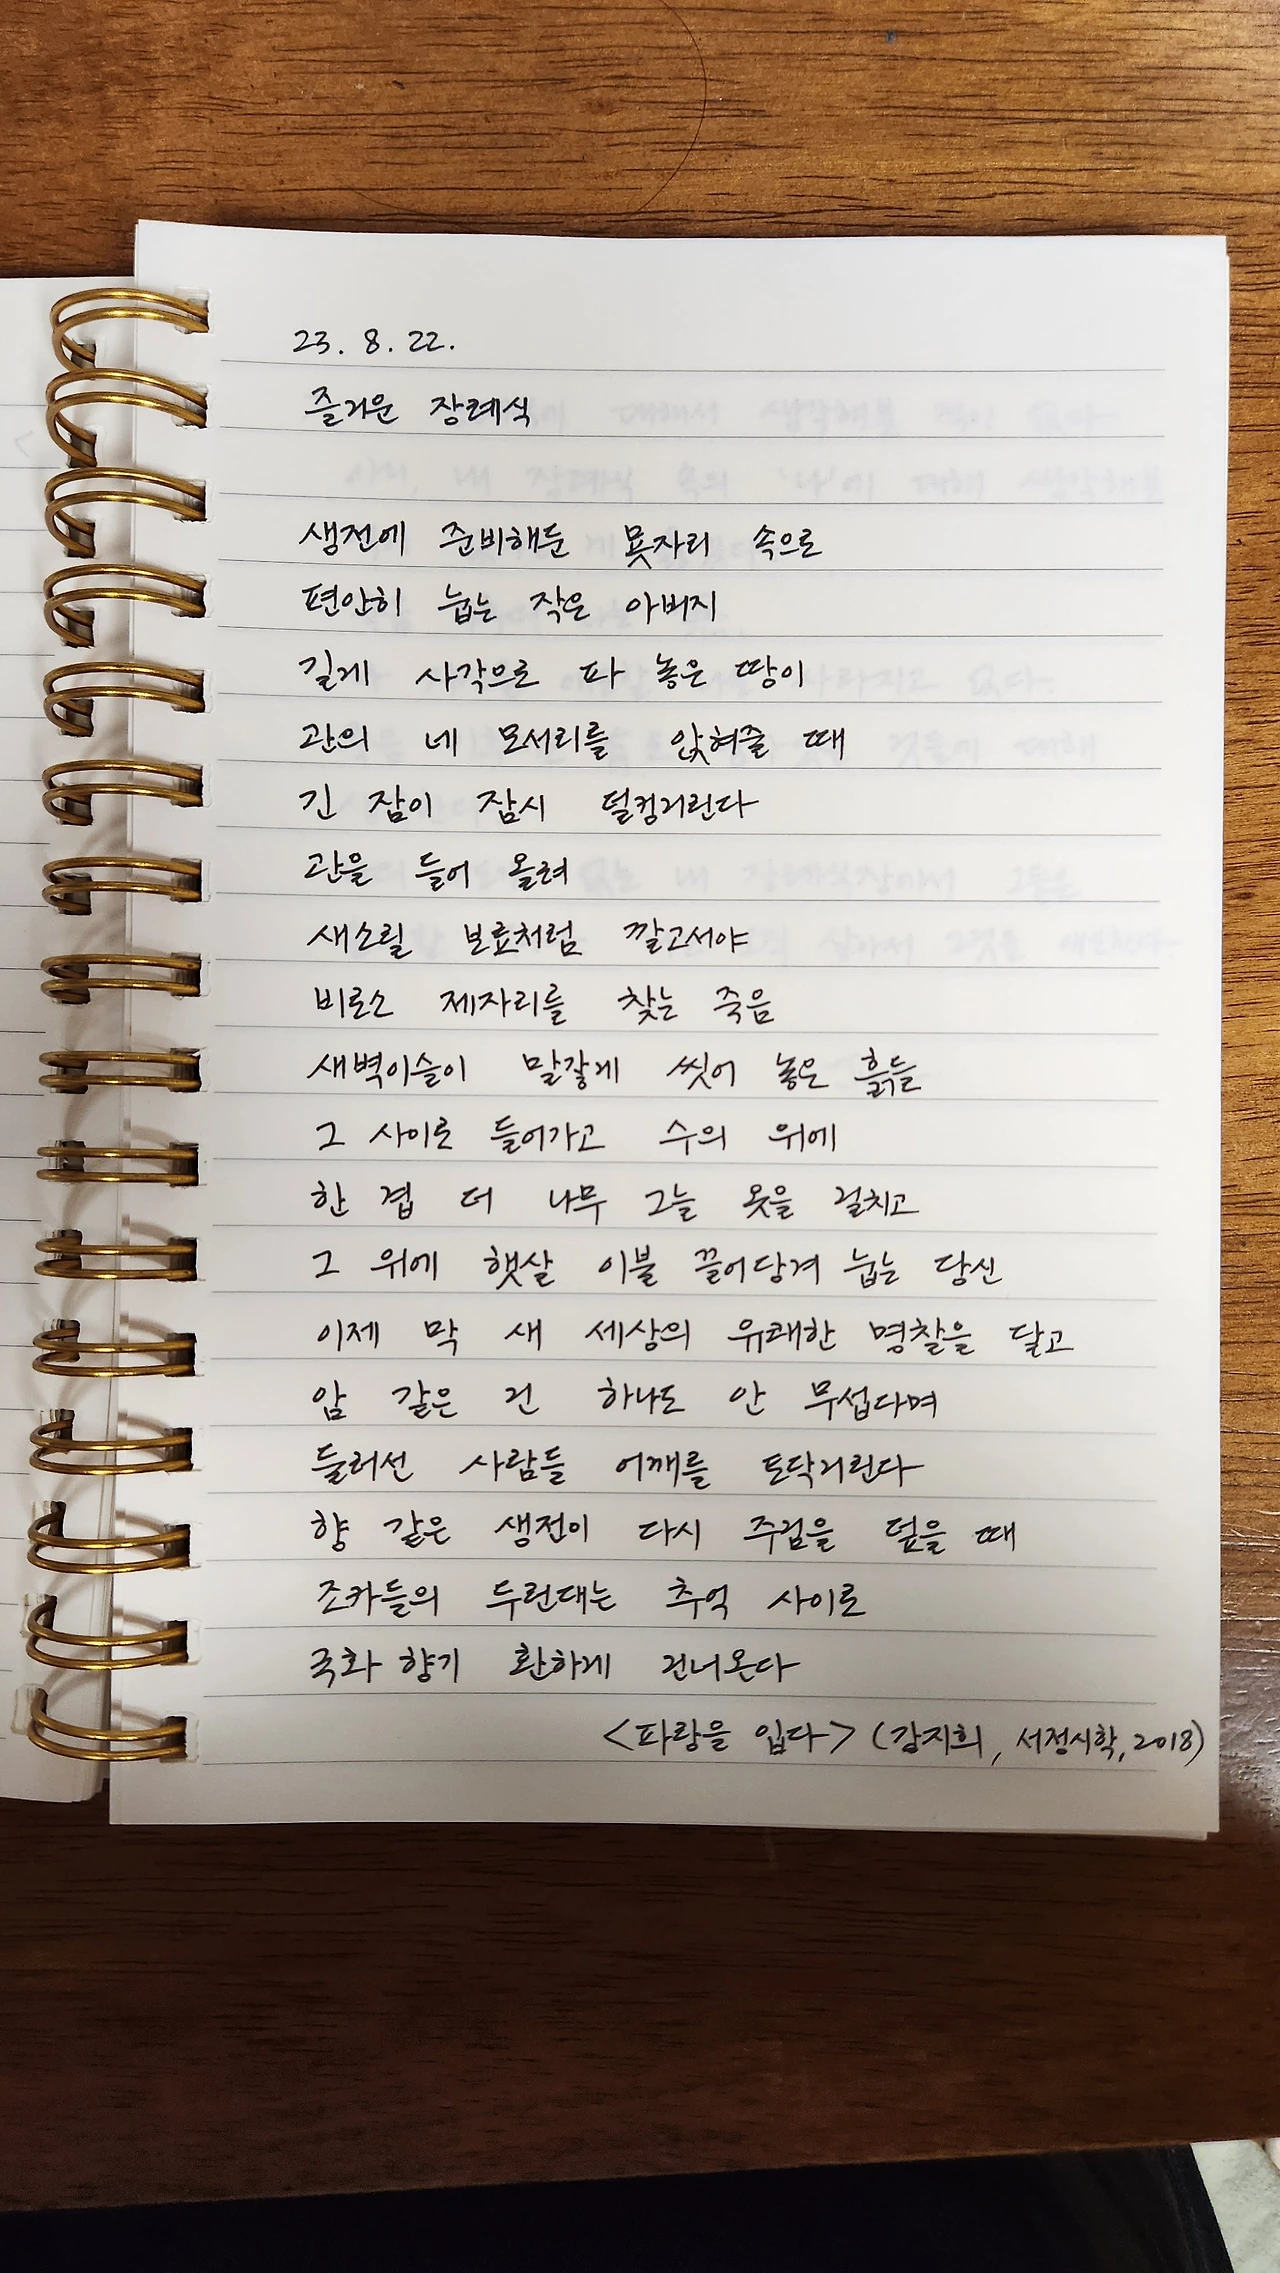 23. 8. 22.
즐거운 장례식
생전에 준비해둔 묫자리 속으로
편안히 눕는 작은 아버지
길게 사각으로 파 놓은 땅이
관의 네 모서리를 앉혀줄 때
긴 잠이 잠시 덜컹거린다
관을 들어 올려
새소릴 보료처럼 깔고서야
비로소 제자리를 찾는 죽음
새벽이슬이 말갛게 씻어 놓은 흙들
그 사이로 들어가고 수의 위에
한 겹 더 나무 그늘 옷을 걸치고
그 위에 햇살 이불 끌어당겨 눕는 당신
이제 막 새 세상의 유쾌한 명찰을 달고
암 같은 건 하나도 안 무섭다며
둘러선 사람들 어깨를 토닥거린다
향 같은 생전이 다시 주검을 덮을 때
조카들의 두런대는 추억 사이로
국화 향기 환하게 건너온다
<파랑을 입다> (강지희, 서정시학, 2018)